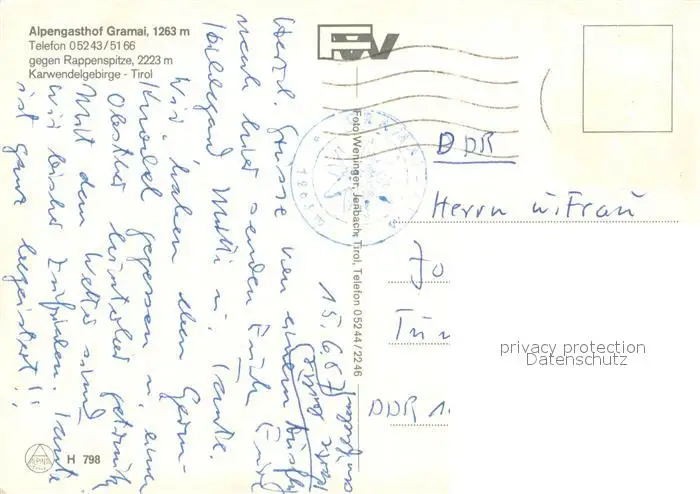 Alpengasthof Gramai, 1263 m
Telefon 05243/5166
gegen Rappenspitze, 2223 m
Karwendelgebirge - Tirol
Herzl. Grüsse von einem Ausflug
nach hier senden Euch Eure
Hildegard Mutti u. Tante.
Wir haben eben Germ-
knödel gegessen u. einen
Obstler hinterher getrunken
Mit dem Wetter sind
wir bisher zufrieden. Tante
ist ganz begeistert!!
15.6.87
Foto Weninger, Jenbach, Tirol, Telefon 05244/2246
DDR
Herrn u. Frau
Jo
DDR 1
privacy protection
Datenschutz
H 798